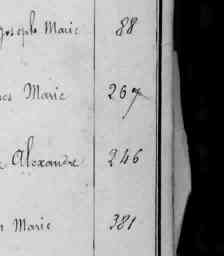 Joseph Marie 88
Marie 267
Alexandre 246
Marie 381